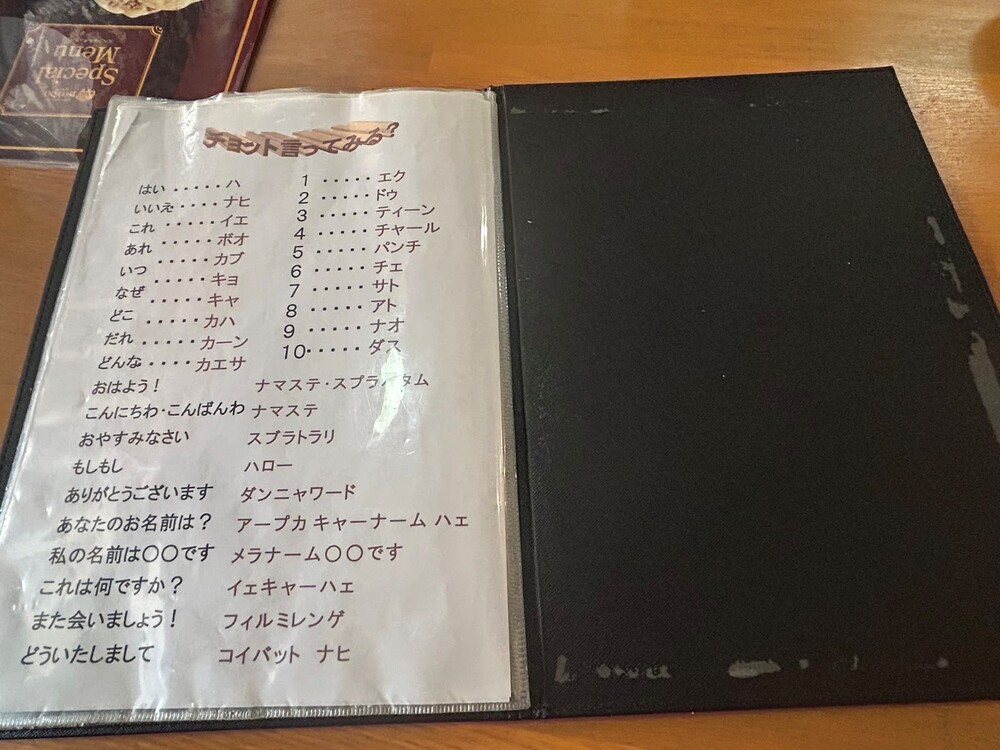 Special
Menu
チョット言ってみる?
はい・・・・・ハ
いいえ・・・・ナヒ
これ・・・・・イエ
あれ・・・・・ボオ
いつ・・・・・カブ
なぜ・・・・・キョ
どこ・・・・・キャ
だれ・・・・・カハ
どんな・・・・カーン
カエサ
1・・・・・エク
2・・・・・ドゥ
3・・・・・ティーン
4・・・・・チャール
5・・・・・パンチ
6・・・・・チェ
7・・・・・サト
8・・・・・アト
9・・・・・ナオ
10・・・・・ダス
おはよう! ナマステ・スプラバタム
こんにちわ・こんばんわ ナマステ
おやすみなさい スブラトラリ
もしもし ハロー
ありがとうございます ダンニャワード
あなたのお名前は? アープカ キャーナーム ハェ
私の名前は〇〇です メラナーム〇〇です
これは何ですか? イェキャーハェ
また会いましょう! フィルミレンゲ
どういたしまして コイバット ナヒ